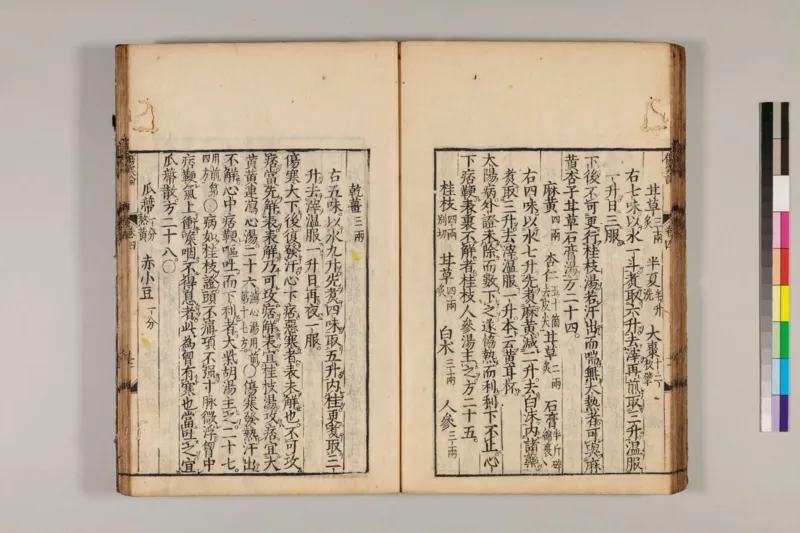 甘草三兩炙 半夏半升洗 大棗十二枚擘
右七味以水一斗煮取六升去滓再煎取三升溫服
一升日三服
下後不可更行桂枝湯若汗出而喘無大熱者可與麻
黃杏子甘草石膏湯方二十四
麻黃四兩 杏仁五十箇去皮尖 甘草二兩炙 石膏半斤碎綿裹
右四味以水七升先煮麻黃減二升去白沫內諸藥
煮取三升去滓溫服一升本云黃耳杯
太陽病外證未除而數下之遂協熱而利利下不止心
下痞鞕表裏不解者桂枝人參湯主之方二十五
桂枝四兩別切 甘草四兩炙 白朮三兩 人參三兩
乾薑三兩
右五味以水九升先煮四味取五升內桂更煮取三
升去滓溫服一升日再夜一服
傷寒大下後復發汗心下痞惡寒者表未解也不可攻
痞當先解表表解乃可攻痞解表宜桂枝湯攻痞宜大
黃黃連瀉心湯二十六瀉心湯用前第十七方〇傷寒發熱汗出
不解心中痞鞕嘔吐而下利者大柴胡湯主之二十七
用前第四方〇病如桂枝證頭不痛項不强寸脉微浮胷中
痞鞕氣上衝咽喉不得息者此為胷有寒也當吐之宜
瓜蒂散方二十八
瓜蒂一分熬黃 赤小豆一分